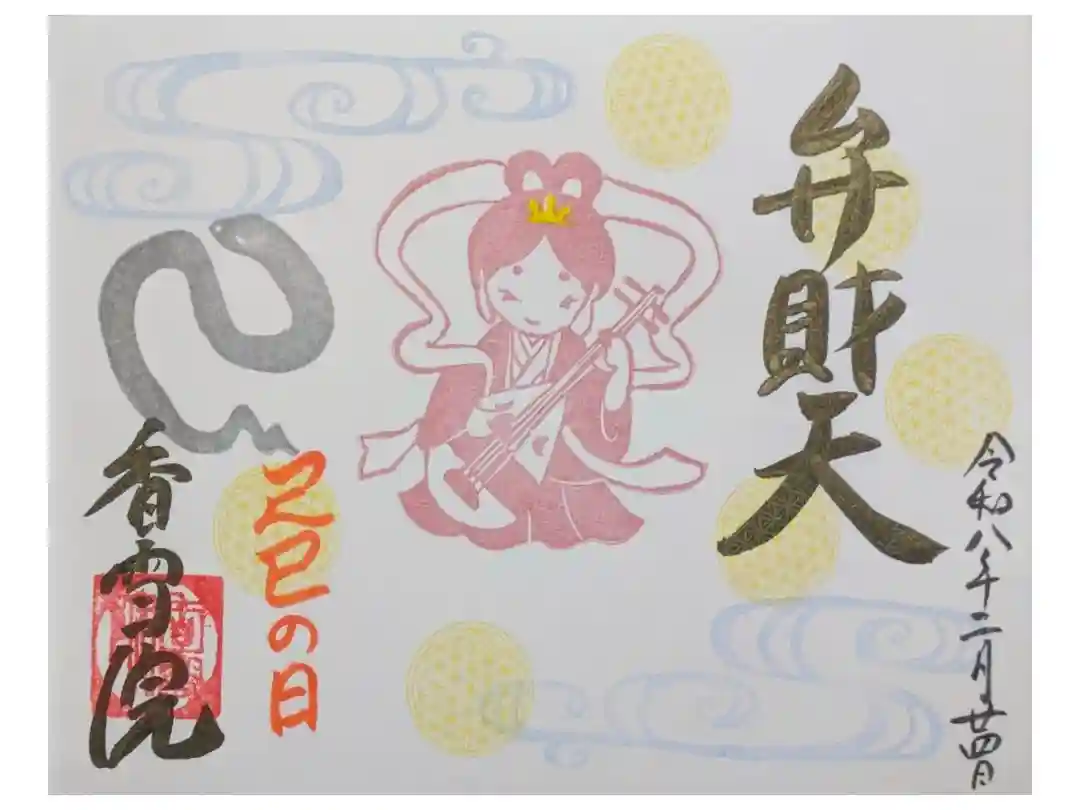 令和八年二月廿四日
弁財天
己巳の日
香雪院